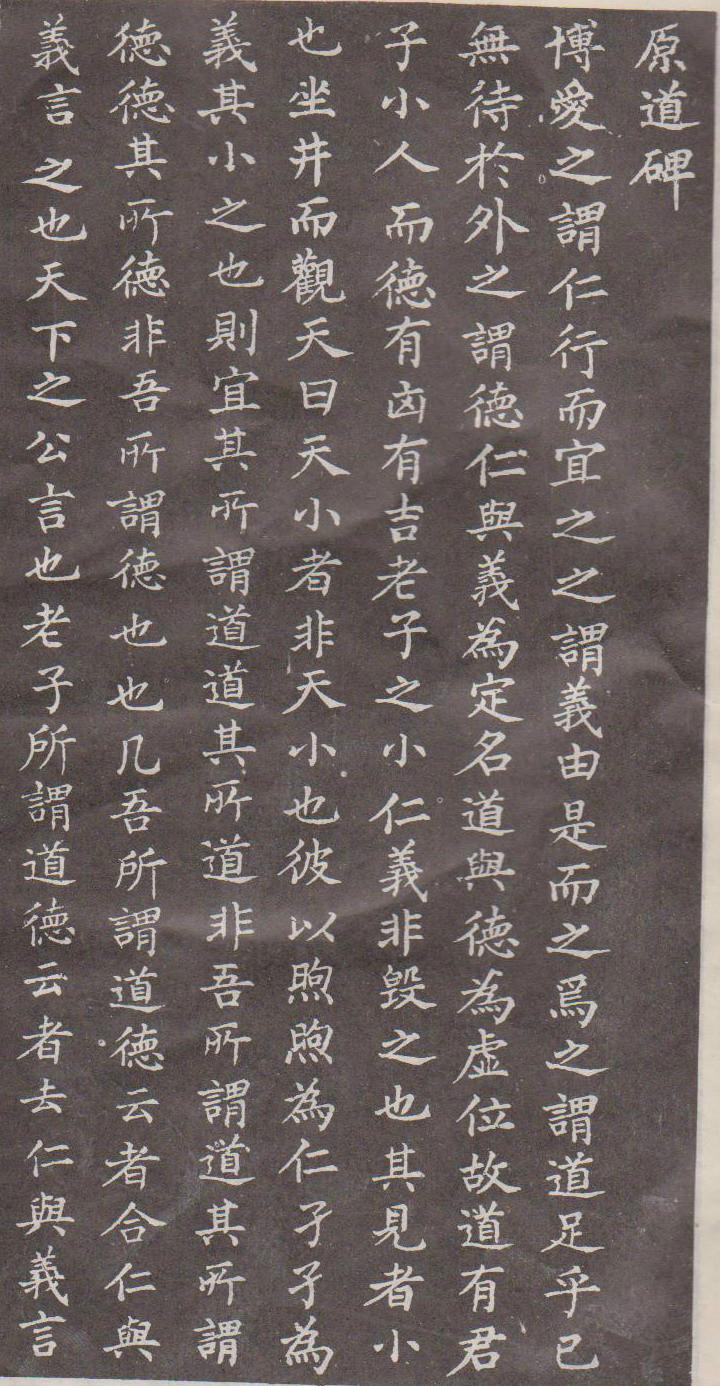 原道碑
博愛之謂仁行而宜之之謂義由是而之爲之謂道足乎已
無待於外之謂德仁與義為定名道與德為虛位故道有君
子小人而德有凶有吉老子之小仁義非毀之也其見者小
也坐井而觀天曰天小者非天小也彼以煦煦為仁孑孑為
義其小之也則宜其所謂道道其所道非吾所謂道其所謂
德德其所德非吾所謂德也也凡吾所謂道德云者合仁與
義言之也天下之公言也老子所謂道德云者去仁與義言